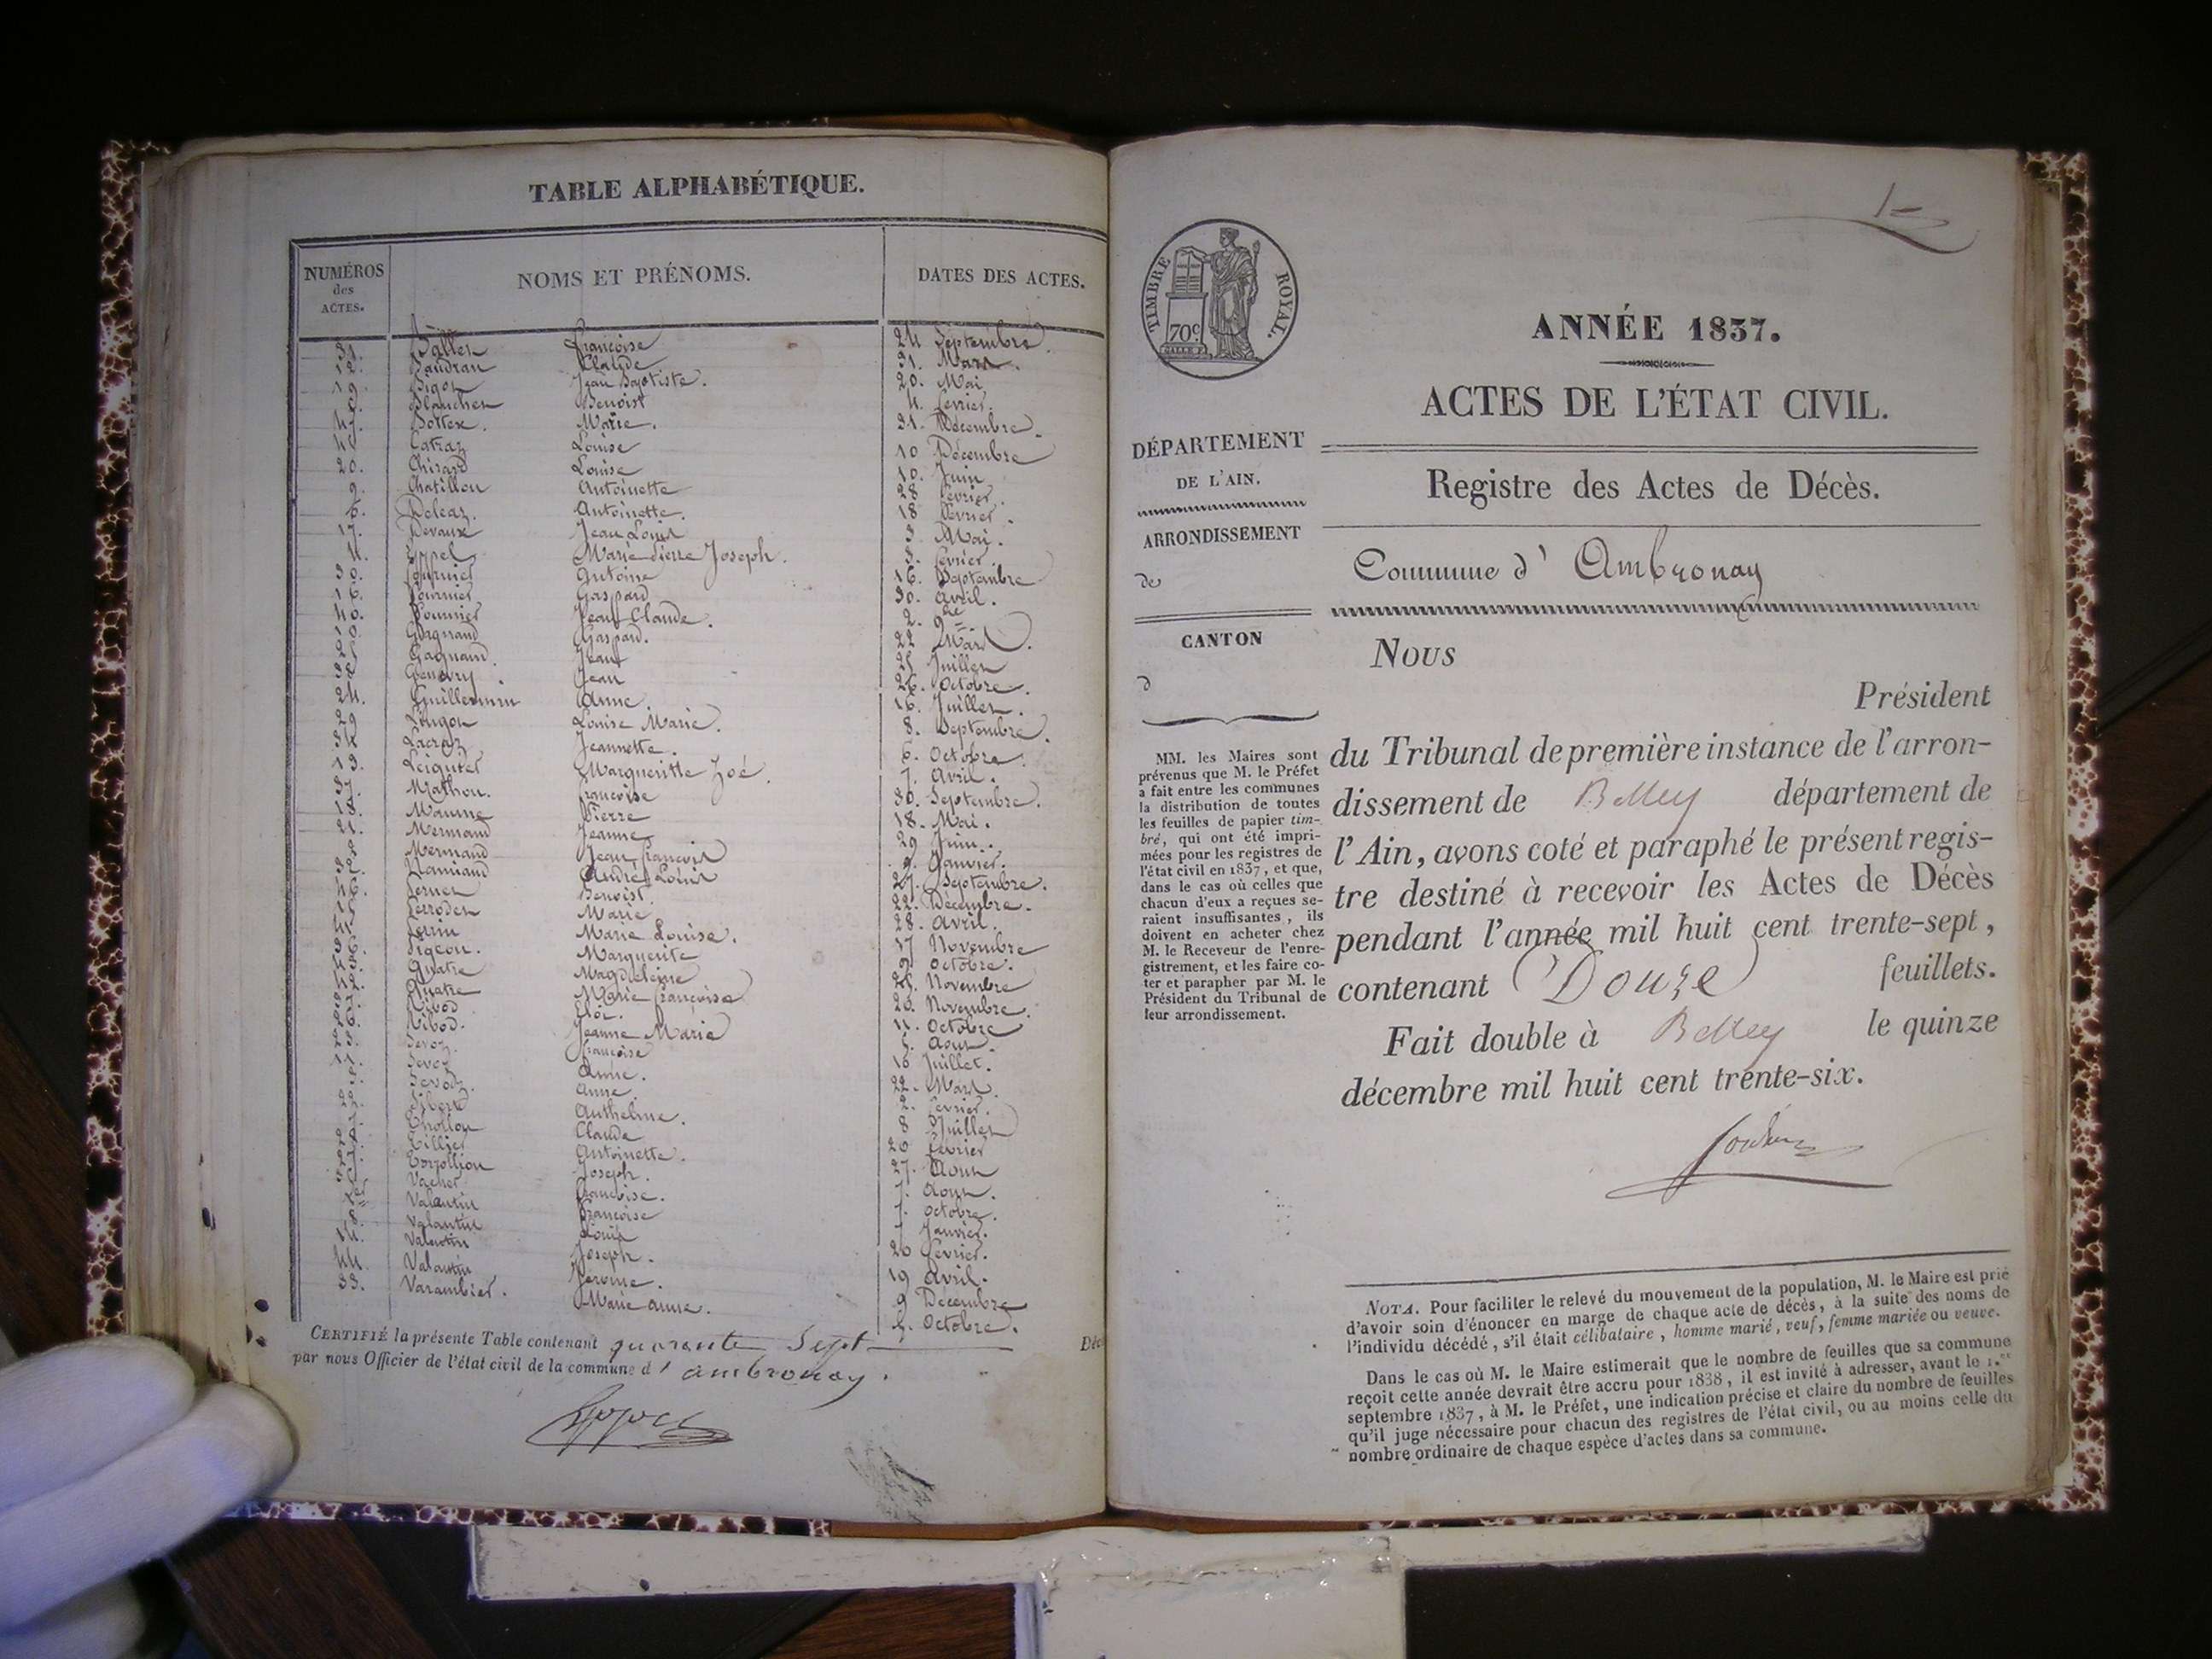 TABLE ALPHABÉTIQUE.
NUMÉROS des ACTES. NOMS ET PRÉNOMS. DATES DES ACTES.
31. Françoise 24 Septembre.
12. Baudran Claude 31. Mars.
19. Jean Baptiste. 20. Mai
Blanchet Benoist 4. fevrier.
47. Bottex. Marie. 31. Décembre.
Catraz Louise 10 Décembre
20. Chirard Louise 10. Juin
9. Chatillon Antoinette 28 fevrier.
6. Deleaz. Antoinette. 18 fevrier.
17. Devaux Jean Louis 3. Mai.
4. Eppel Marie Pierre Joseph. 3. fevrier.
30. Fournier Antoine 16. Septembre
16. Fournier Gaspard 30. avril.
40. Jean Claude. 2. 9bre
10. Gagnaud Gaspard. 22 Mars.
25 Gagnaud. Jean 25 Juillet
38 Jean 26. Octobre.
24. Guillermin Anne. 16. Juillet.
29 Louise Marie. 8. Septembre.
Lacraz Jeannette. 6. Octobre.
13. Margueritte Zoé. 7. avril.
37. Mathon. françoise 30. Septembre.
18. Pierre 18. Mai.
21. Mermand Jeanne 29 Juin.
Mermand Jean françois 9. Janvier.
32. André Louis 27. Septembre.
46. Benoist. 22. Décembre.
15. Perrodet Marie 28. avril.
Perrin Marie Louise. 17 Novembre
36. Pigeon. Marguerite 9. Octobre.
Quatre Magdeleine 25. Novembre
Quatre Marie françoise 20. Novembre.
Ribod 11. Octobre
Ribod. Jeanne Marie 5. Aout.
Sevoz. françoise 16 Juillet.
11. Sevoz Anne. 22. Mars.
Anne. 2. fevrier.
Anthelme. 8 Juillet
Trollion Claude 20 fevrier
Tillier Antoinette. 27. Aout
Joseph. 7. Aout.
Vacher françoise. 7. Octobre.
Valantin françoise 7 Janvier.
8. Valantin Louis 20 fevrier.
14. Valantin Joseph. 19 avril.
44. Valantin Jerome. 9 Décembre
33. Varambier. Marie anne. 5. Octobre.
CERTIFIÉ la présente Table contenant quarante Sept Déc
par nous Officier de l'état civil de la commune d' ambronay.
1
TIMBRE ROYAL.
70c.
ANNÉE 1837.
ACTES DE L'ÉTAT CIVIL.
DÉPARTEMENT
DE L'AIN.
Registre des Actes de Décès.
ARRONDISSEMENT
de
Commune d' Ambronay
CANTON
d
Nous
Président
du Tribunal de première instance de l'arron-
dissement de Belley département de
l'Ain, avons coté et paraphé le présent regis-
tre destiné à recevoir les Actes de Décès
pendant l'année mil huit cent trente-sept,
contenant Douze feuillets.
Fait double à Belley le quinze
décembre mil huit cent trente-six.
MM. les Maires sont
prévenus que M. le Préfet
a fait entre les communes
la distribution de toutes
les feuilles de papier tim-
bré, qui ont été impri-
mées pour les registres de
l'état civil en 1837, et que,
dans le cas où celles que
chacun d'eux a reçues se-
raient insuffisantes, ils
doivent en acheter chez
M. le Receveur de l'enre-
gistrement, et les faire co-
ter et parapher par M. le
Président du Tribunal de
leur arrondissement.
NOTA. Pour faciliter le relevé du mouvement de la population, M. le Maire est prié
d'avoir soin d'énoncer en marge de chaque acte de décès, à la suite des noms de
l'individu décédé, s'il était célibataire, homme marié, veuf, femme mariée ou veuve.
Dans le cas où M. le Maire estimerait que le nombre de feuilles que sa commune
reçoit cette année devrait être accru pour 1838, il est invité à adresser, avant le 1.er
septembre 1837, à M. le Préfet, une indication précise et claire du nombre de feuilles
qu'il juge nécessaire pour chacun des registres de l'état civil, ou au moins celle du
nombre ordinaire de chaque espèce d'actes dans sa commune.